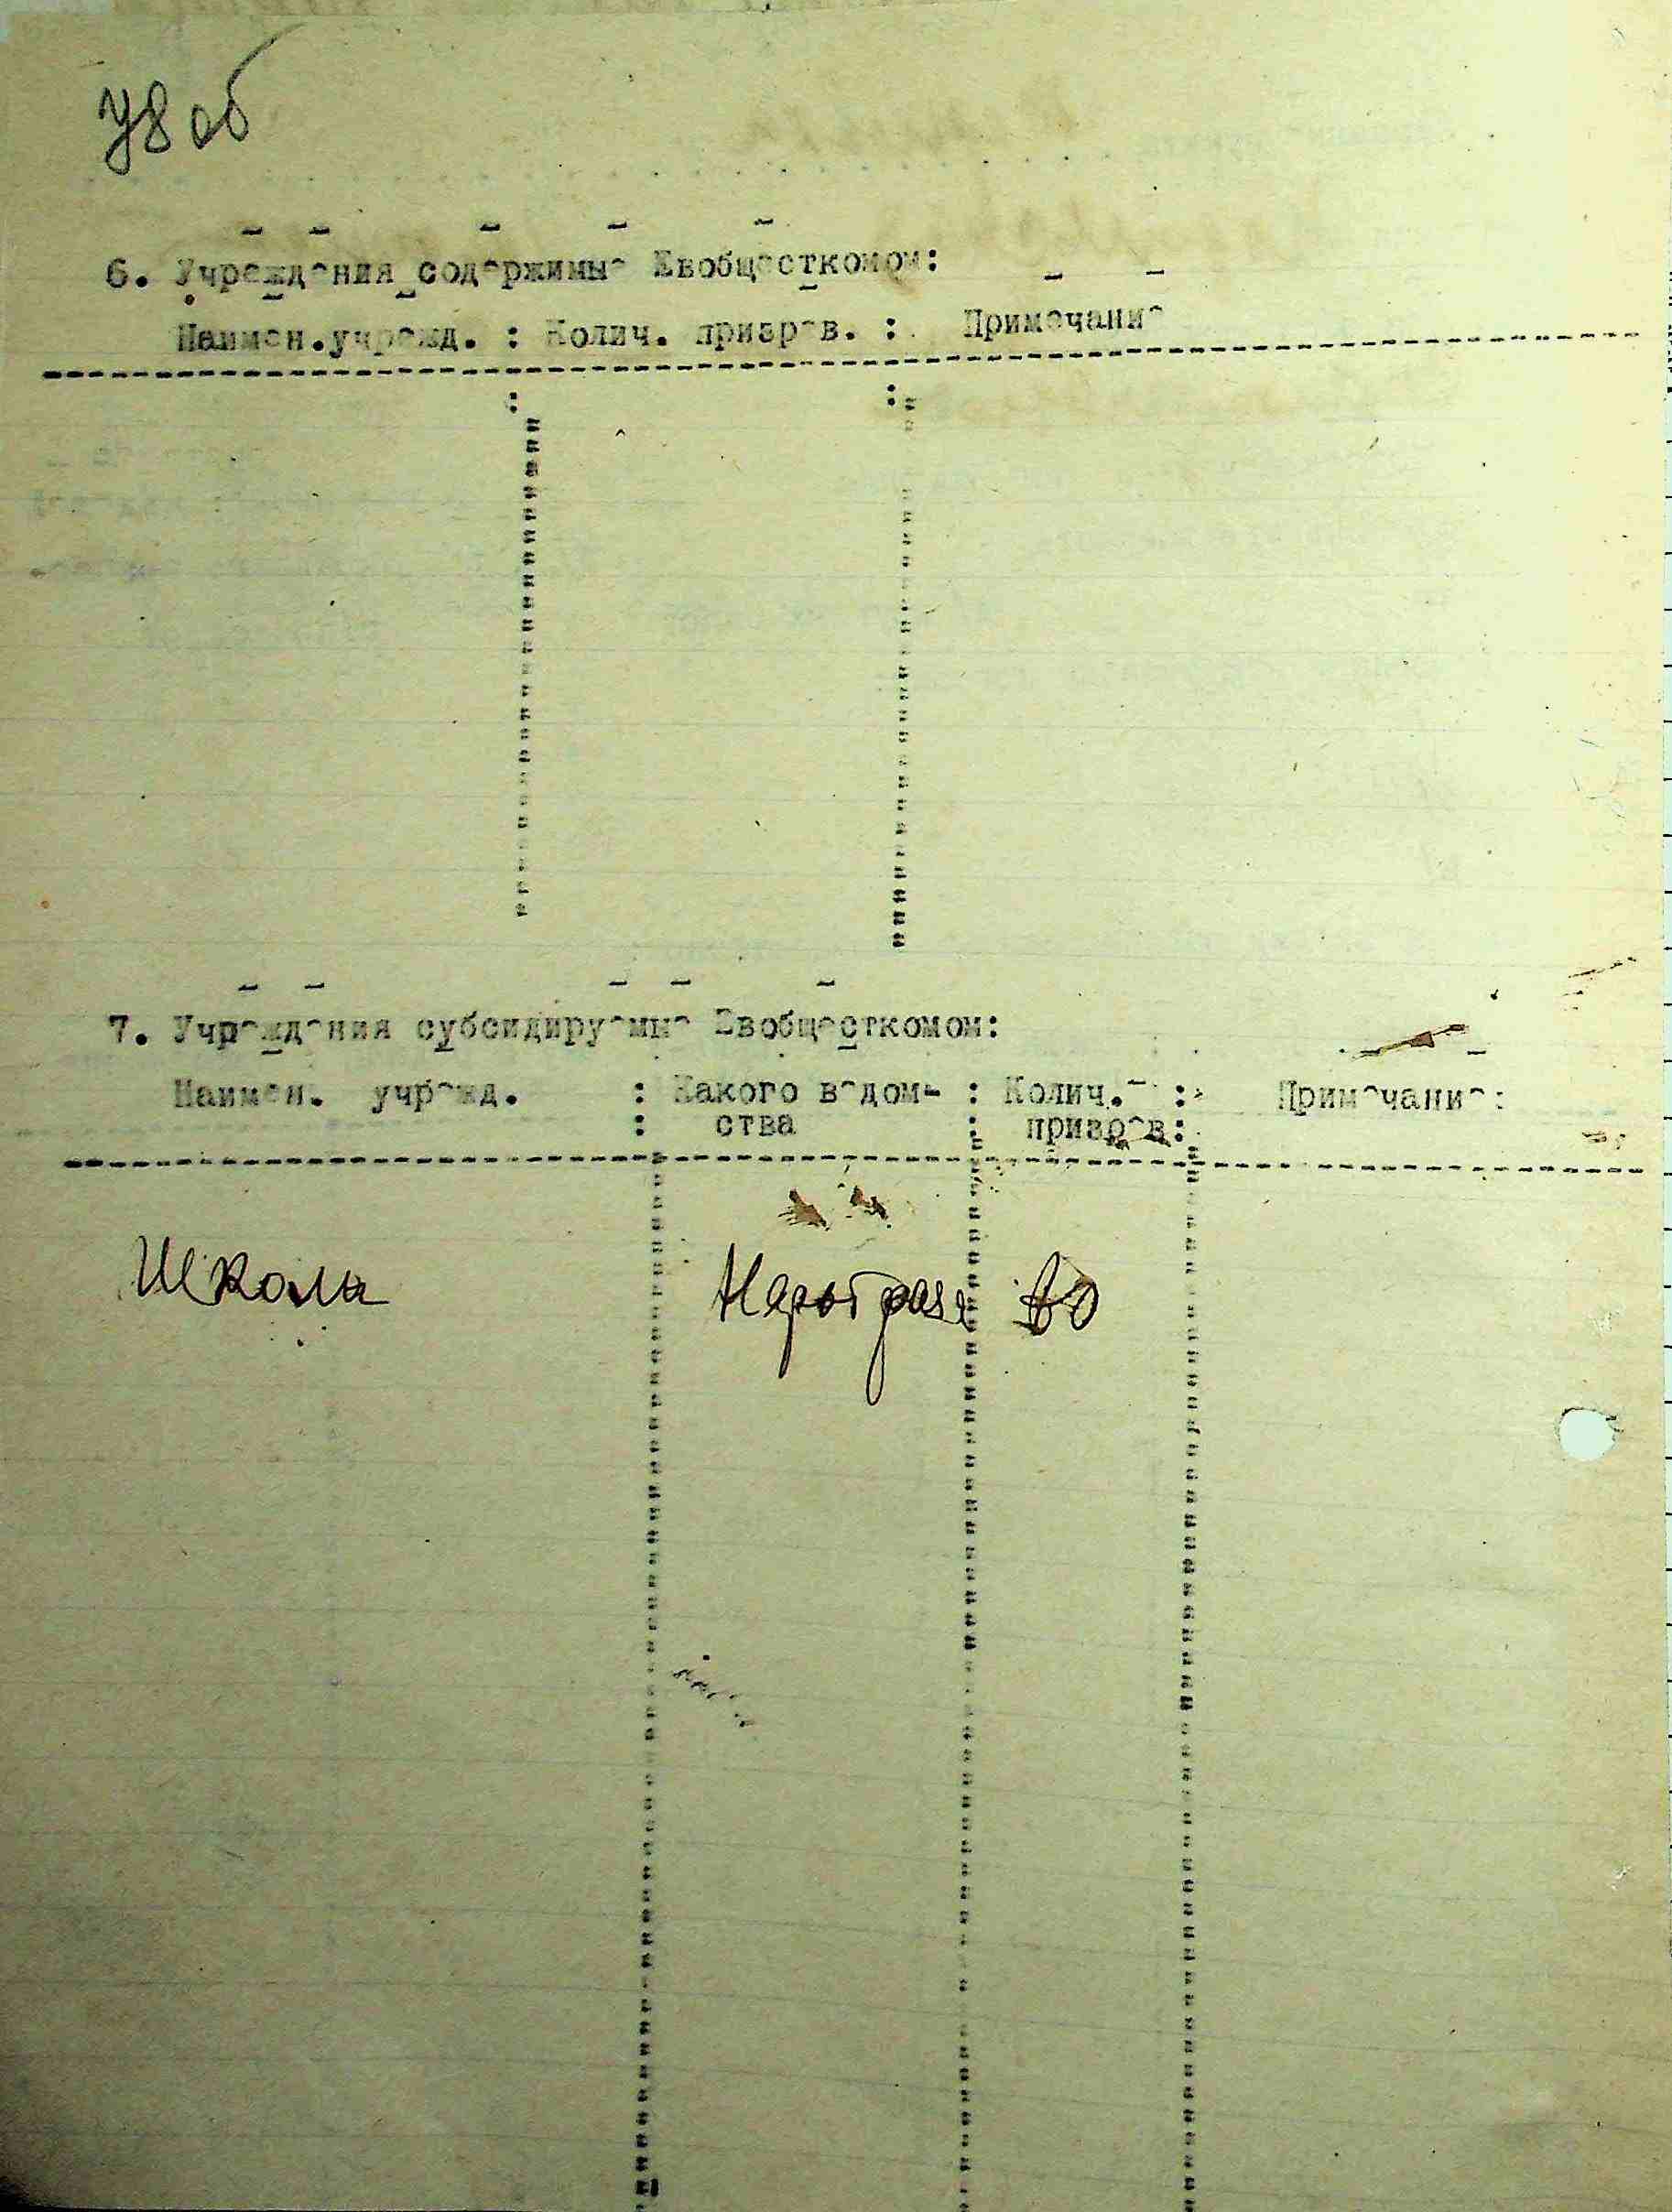 48 об
6. Учреждения содержимые Евобщесткомом:
Наимен. учрежд. : Колич. призрев. : Примечание
7. Учреждения субсидируемые Евобщесткомом:
Наимен. учрежд. : Какого ведом- : Колич. : Примечание:
: ства : призрев:
Школа